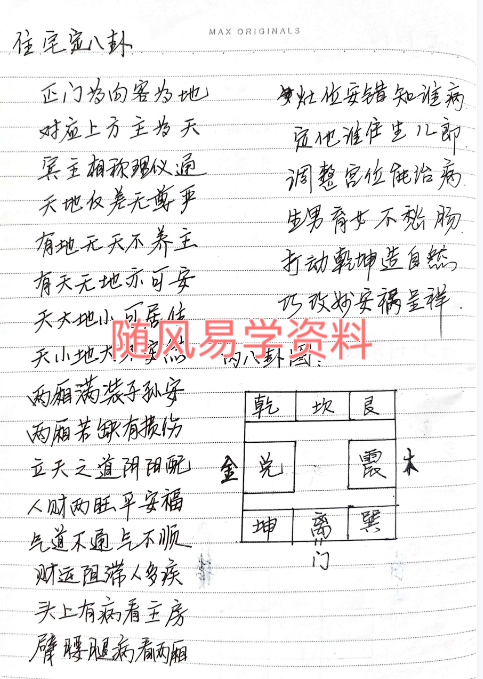 MAX ORIGINALS
住宅定八卦
正门为向客为地
对应上方主为天
宾主相称理仪通
天地仪差无尊严
有地无天不养主
有天无地亦可安
天大地小可居住
天小地大不安然
两厢满装子孙安
两厢若缺有损伤
立天之道阴阳配
人财两旺平安福
气道不通气不顺
财运阻滞人多疾
头上有病看主房
臂腰腿病看两厢
灶位安错知谁病
定他谁住生儿郎
调整宫位能治病
生男育女不愁肠
打动乾坤造自然
巧改妙安祸呈祥
随风易学资料
内八卦图:
乾 坎 艮
金 兑 震 木
坤 离 巽
门